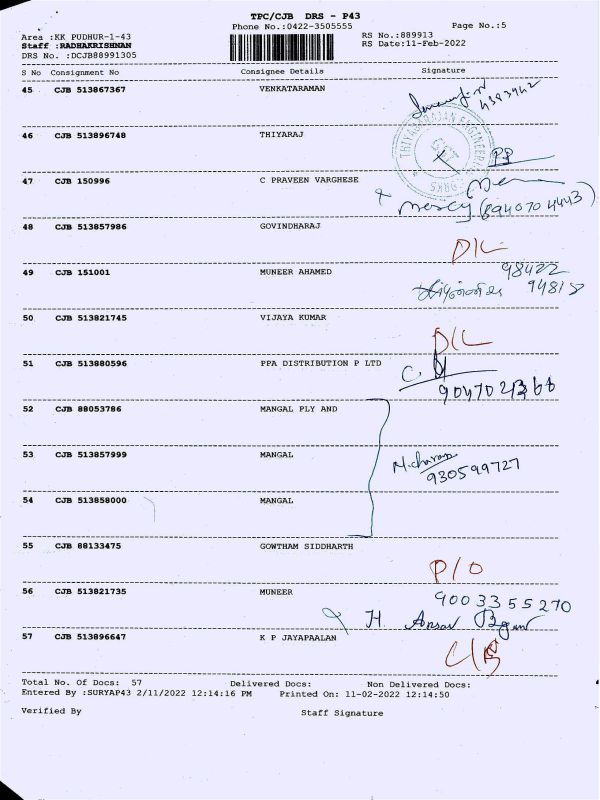 TPC/CJB DRS - P43
Phone No.:0422-3505555
Page No.:5
Area :KK PUDHUR-1-43
RS No.:889913
Staff :RADHAKRISHNAN
RS Date:11-Feb-2022
DRS No. :DCJB88991305
S No Consignment No Consignee Details Signature
45 CJB 513867367 VENKATARAMAN
46 CJB 513896748 THIYARAJ
47 CJB 150996 C PRAVEEN VARGHESE
mercy (8940704443)
48 CJB 513857986 GOVINDHARAJ
D/L
49 CJB 151001 MUNEER AHAMED
98422
94818
50 CJB 513821745 VIJAYA KUMAR
D/L
51 CJB 513880596 PPA DISTRIBUTION P LTD
52 CJB 88053786 MANGAL PLY AND
53 CJB 513857999 MANGAL
930599727
54 CJB 513858000 MANGAL
55 CJB 88133475 GOWTHAM SIDDHARTH
P/O
56 CJB 513821735 MUNEER
9003355270
H. Ansar
57 CJB 513896647 K P JAYAPAALAN
Total No. Of Docs: 57 Delivered Docs: Non Delivered Docs:
Entered By :SURYAP43 2/11/2022 12:14:16 PM Printed On: 11-02-2022 12:14:50
Verified By Staff Signature